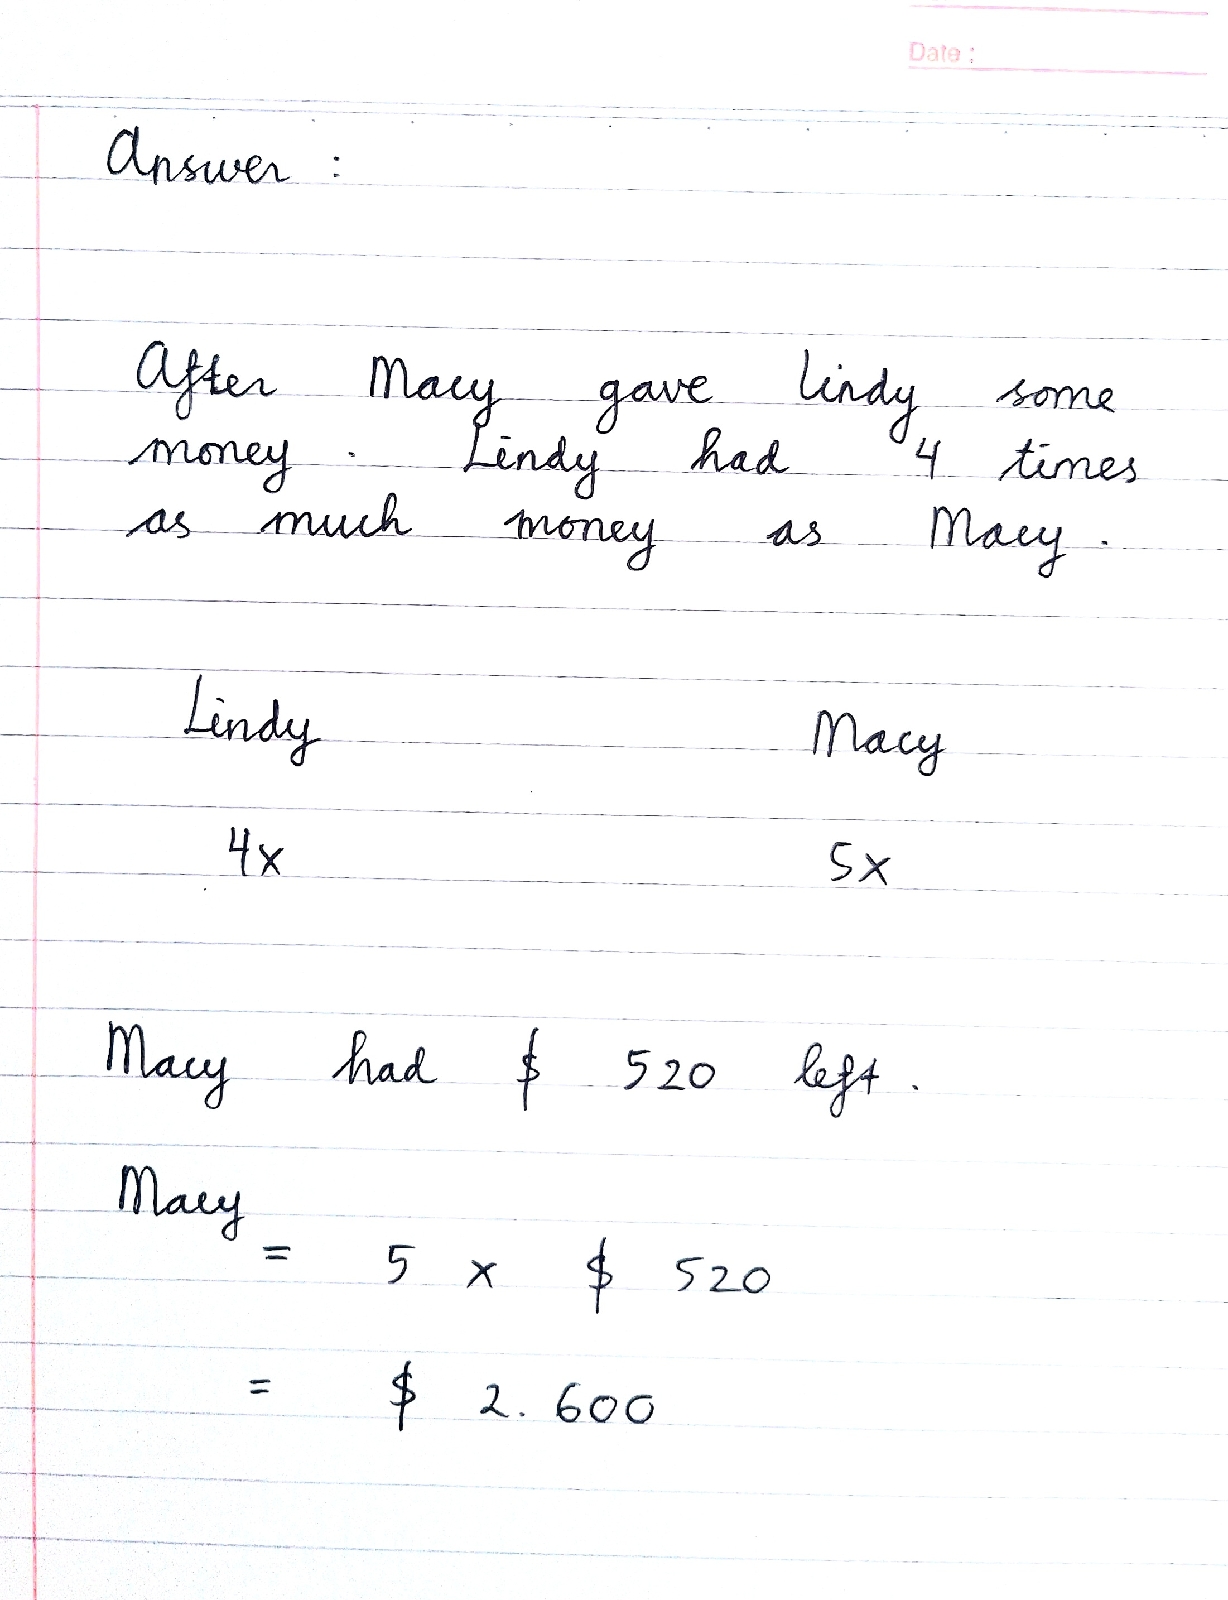 Date :
Answer :
After Macy gave Lindy some
money . Lindy had 4 times
as much money as Macy .
Lindy Macy
4x 5x
Macy had $ 520 left .
Macy
= 5 x $ 520
= $ 2.600